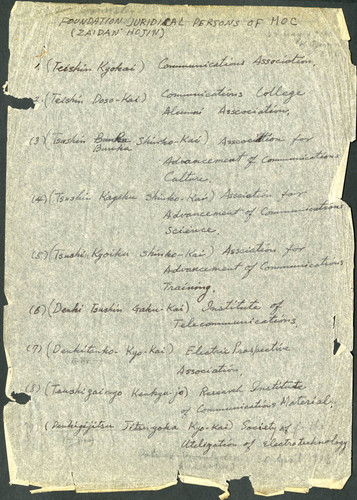 FOUNDATION JURIDICAL PERSONS OF MOC
(ZAIDAN HOJIN)
1. (Teishin Kyokai) Communications Association.
2. (Teishin Doso-Kai) Communications College
Alumni Association,
(3) (Tsushin Bunka Shinko-Kai) Association for
Bunka
Advancement of Communications
Culture.
(4) (Tsushin Kagaku Shinko-Kai) Association for
Advancement of Communications
Science.
(5) (Tsushi Kyoiku Shinko-Kai) Association for
Advancement of Communications
Training.
(6) (Denki Tsushin Gaku-Kai) Institute of
Telecommunications.
(7) (Denkitenko-Kyo-Kai) Electric Prospective
Association.
(8) (Tsushizairyo Kenkyu-jo) Research Institute
of Communications Material.
(Denkigijitsu Jitsuyoka Kyo-Kai) Society of
Utilization of electrotechnology